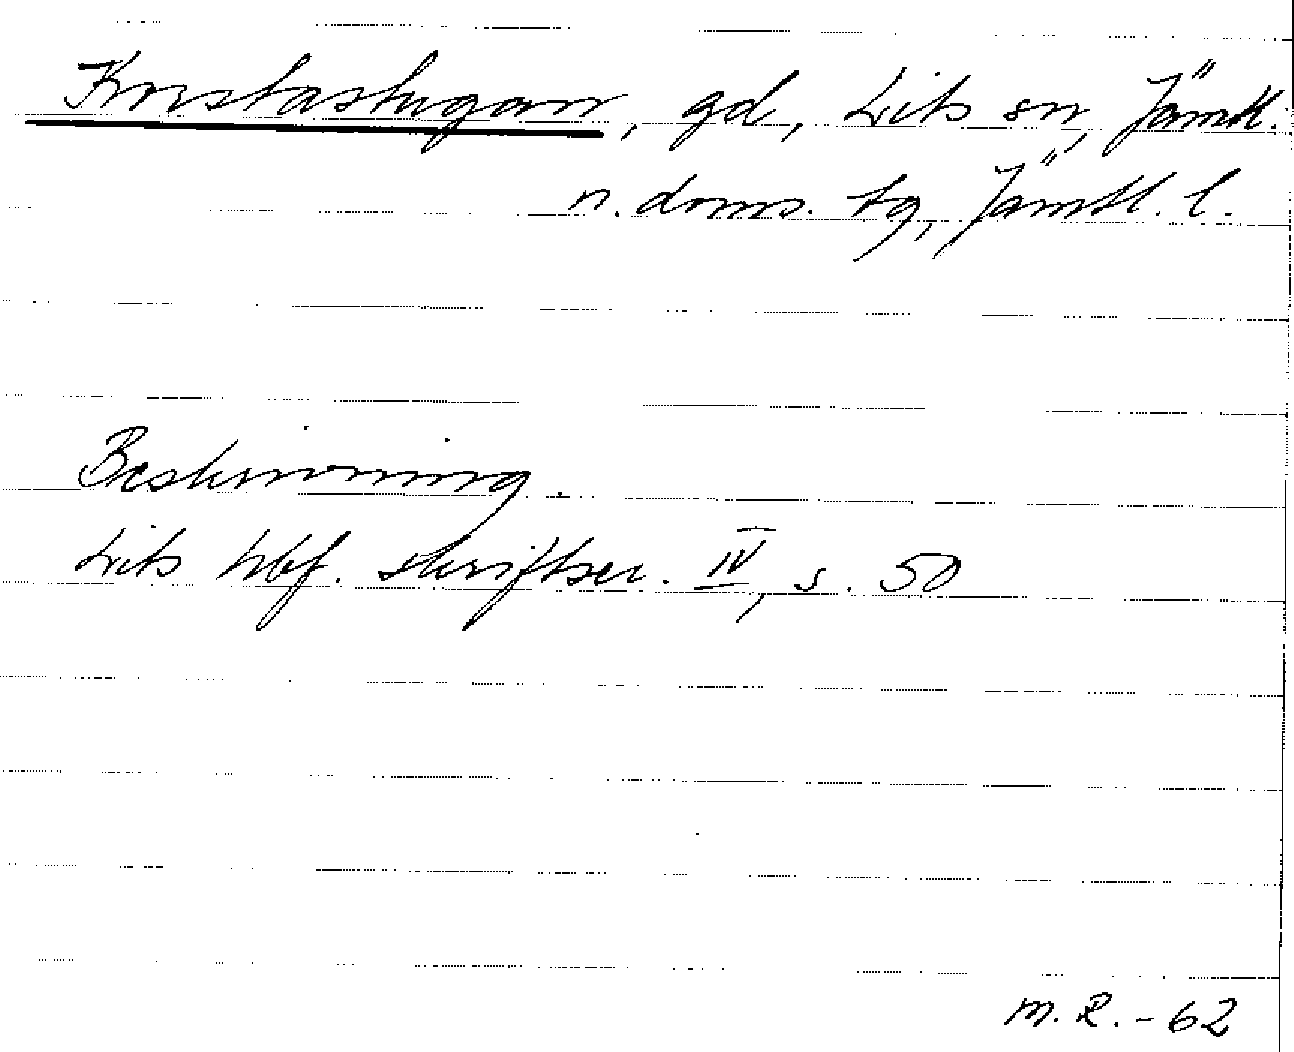 Krestastugan, gd, Lits sn, Jämtl.
n. doms. tg, Jämtl. l.
Beskrivning.
Lits hbf. skriftser. IV, s. 50
M.R. - 62